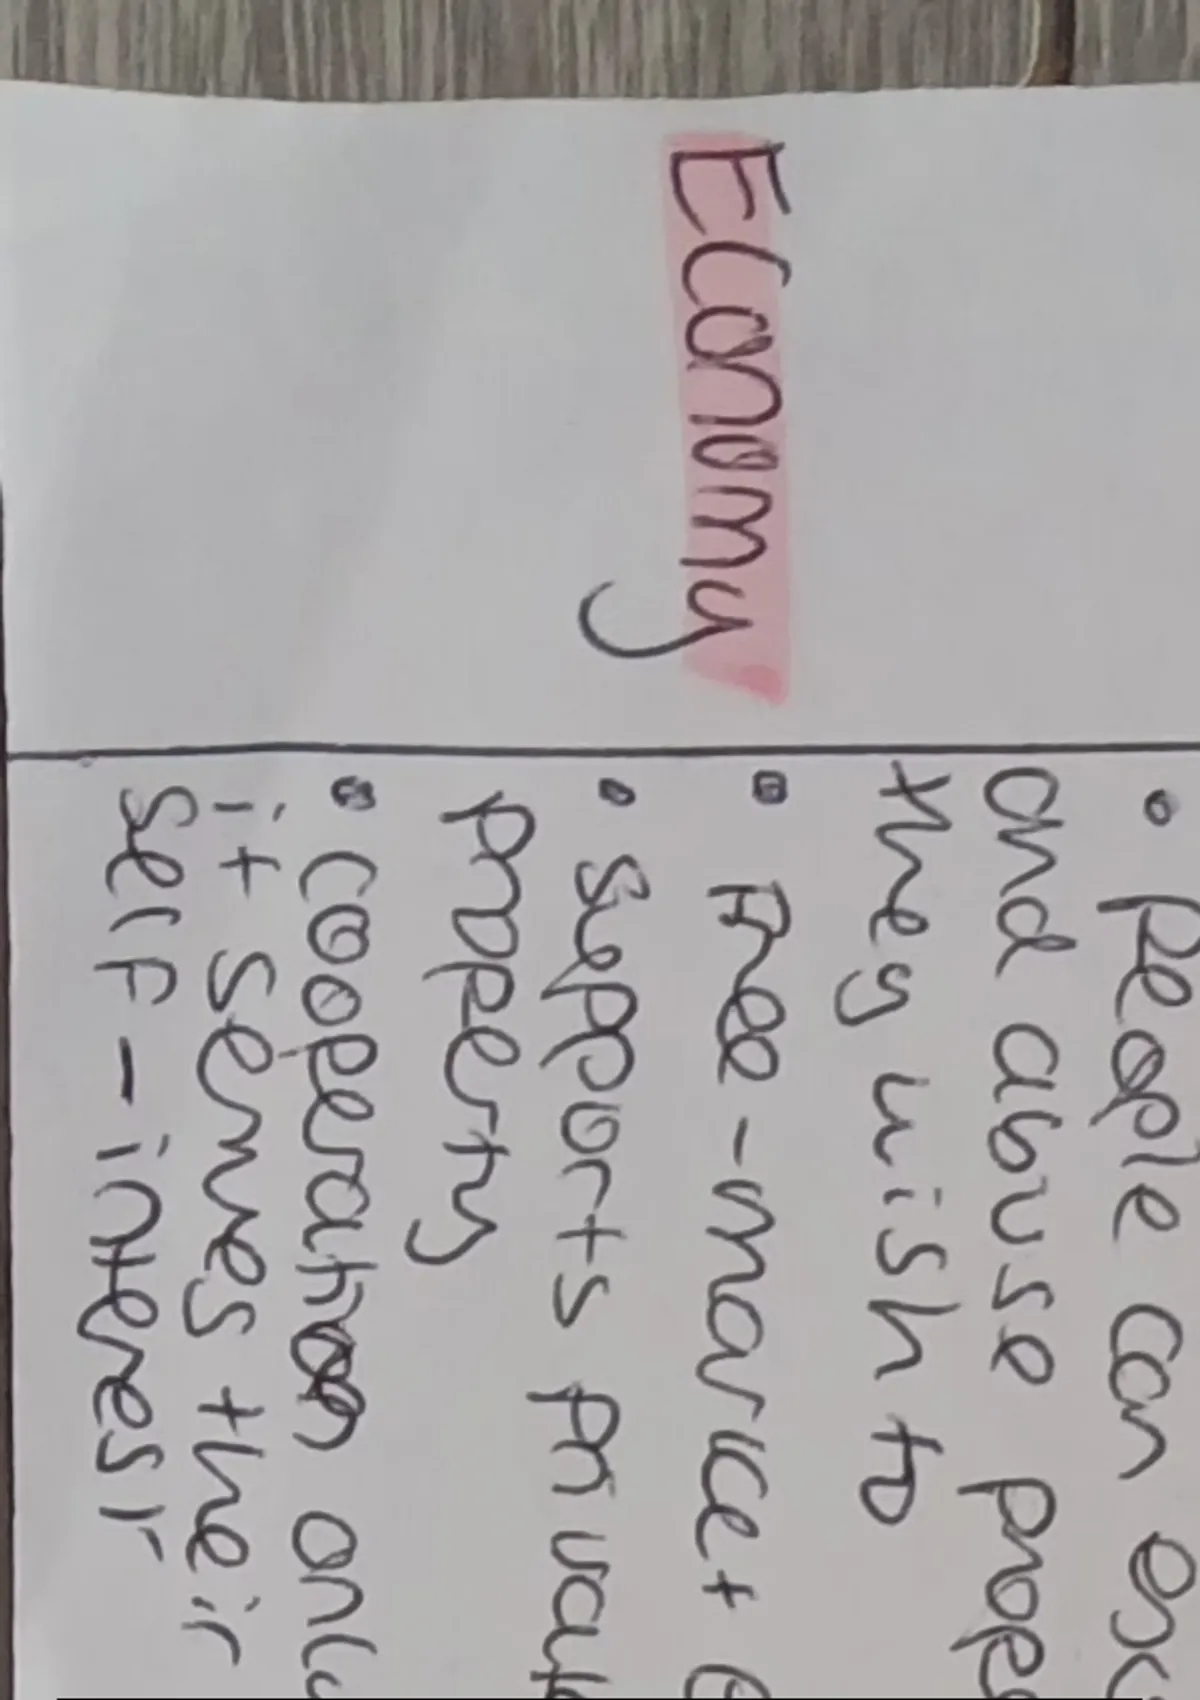 Economy
• people can
and abuse
they wish to
• free-market
• supports private
property
• cooperation only
it serves their
self-interest